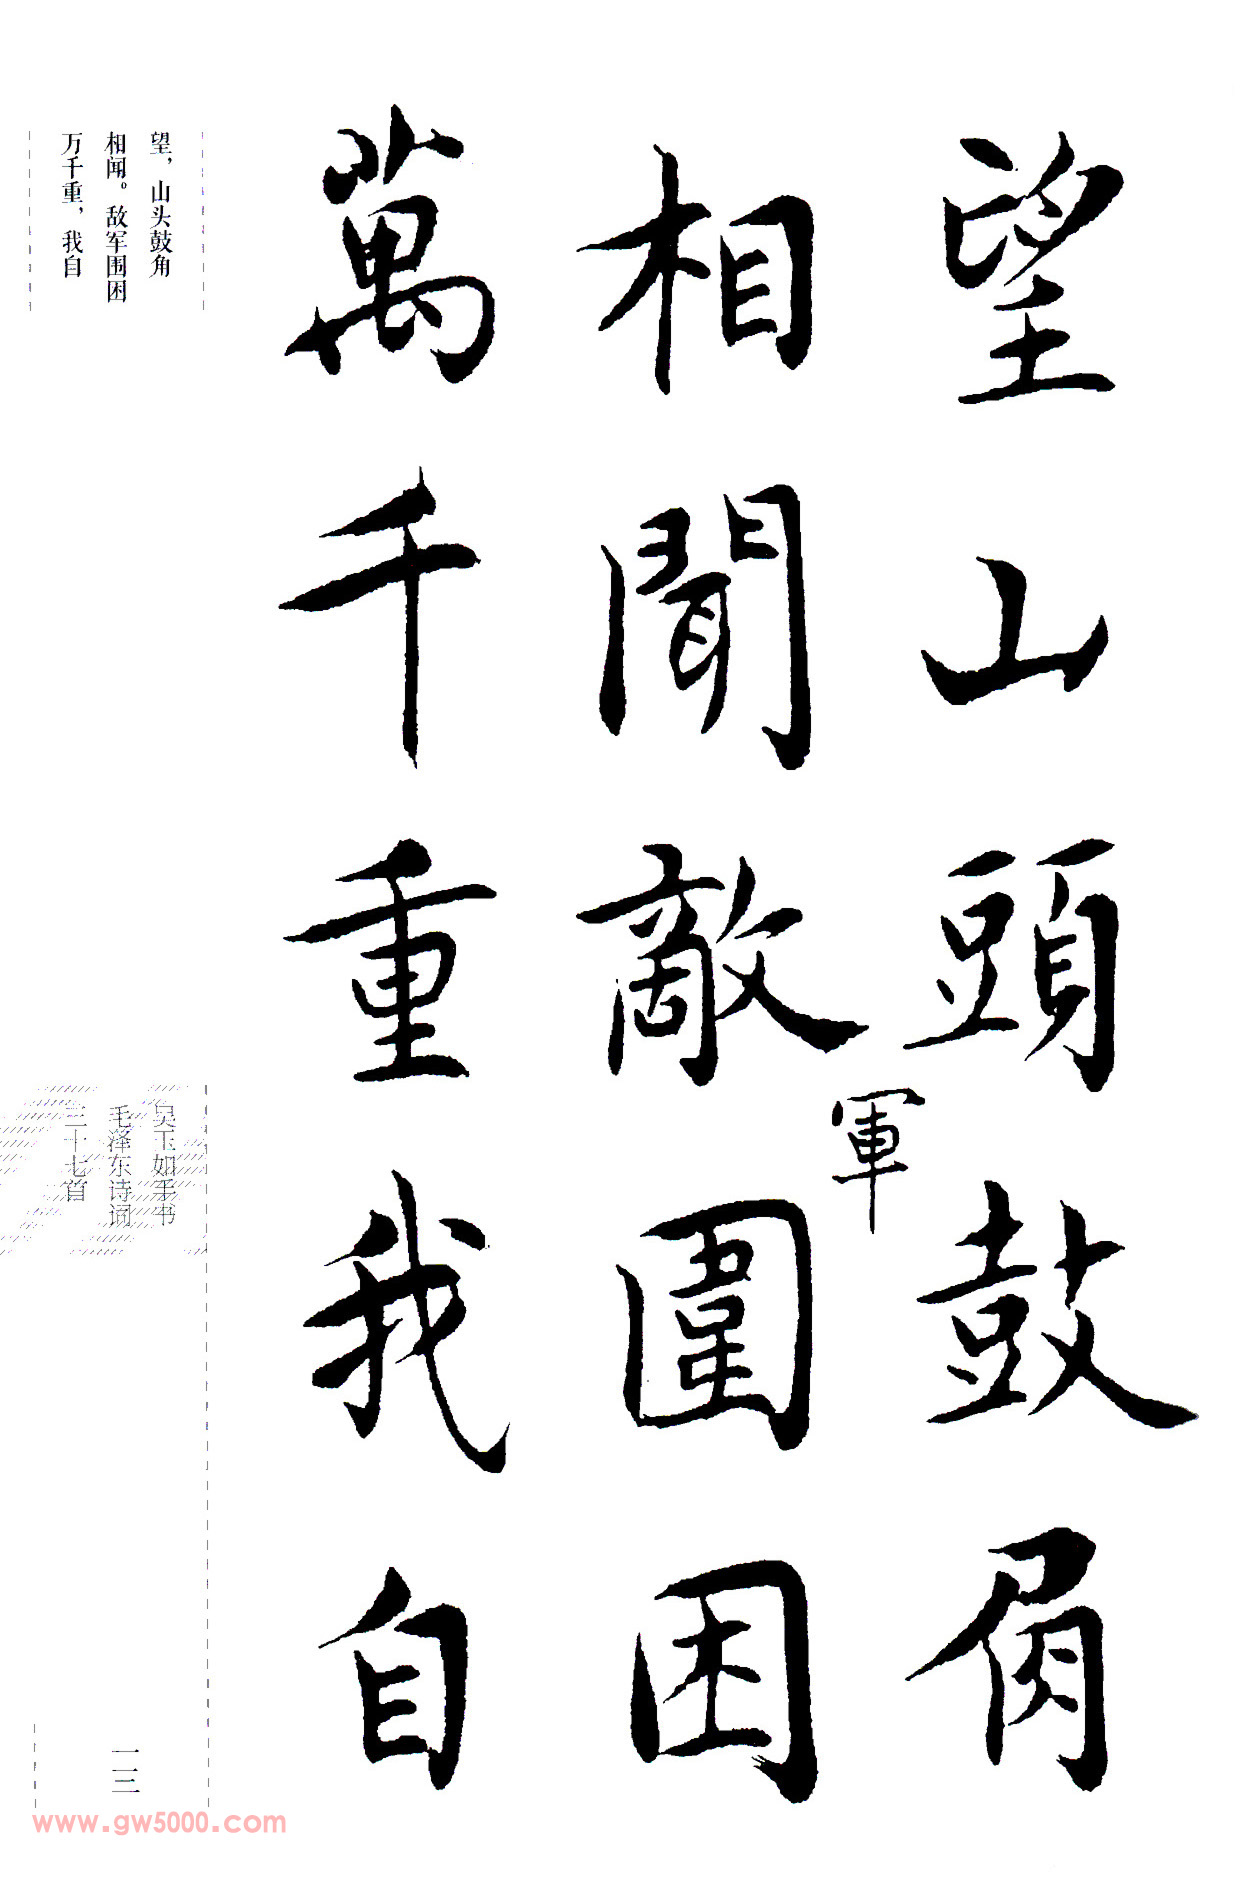 望山頭鼓角
相聞敵軍圍困
萬千重我自
望，山头鼓角
相闻。敌军围困
万千重，我自
吴玉如手书
毛泽东诗词
三十七首
一三
www.gw5000.com